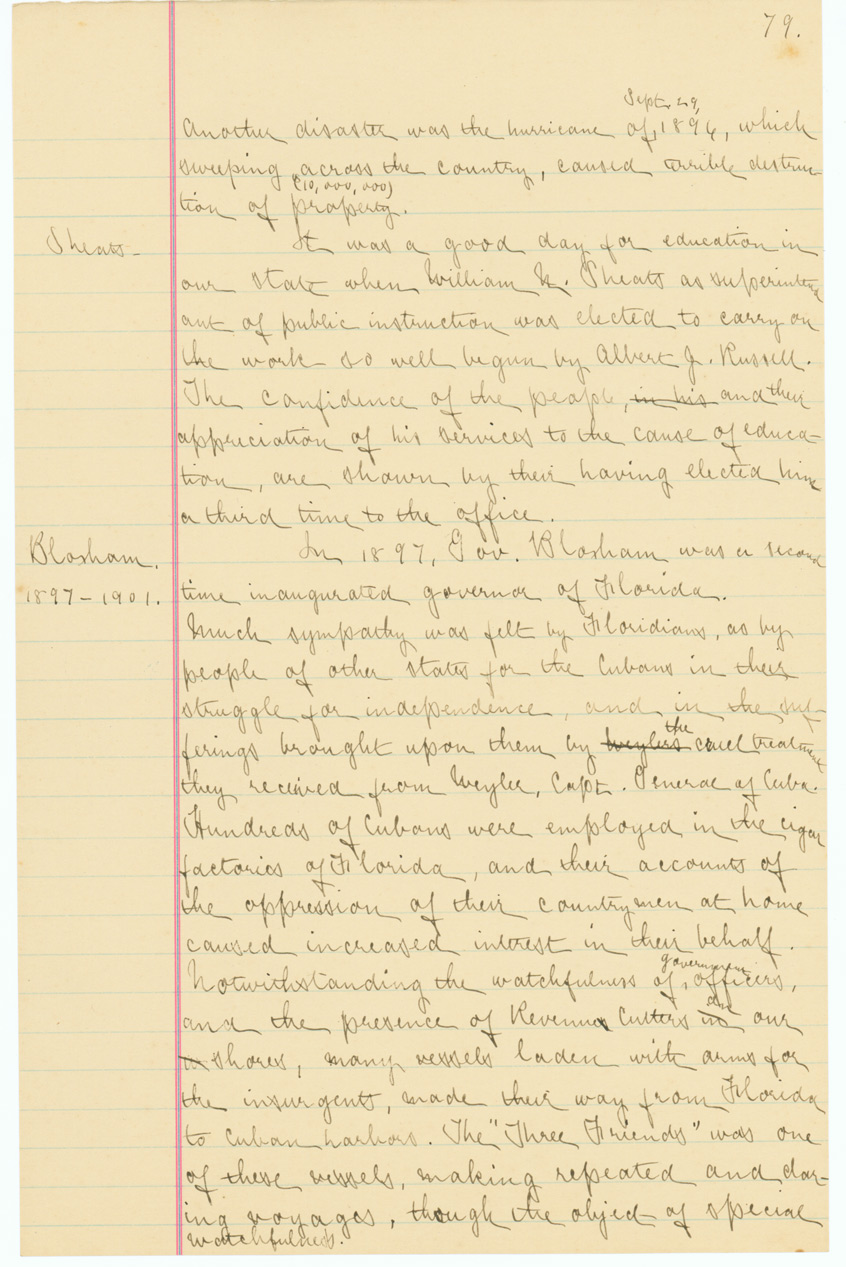 79.
Sept. 29,
Another disaster was the hurricane of, 1896, which
sweeping across the country, caused terrible destruc-
(10,000,000)
tion of property.
Sheats-
It was a good day for education in
our state when William N. Sheats as superintend
ant of public instruction was elected to carry on
the work so well begun by Albert J. Russell.
The confidence of the people, in his and their
appreciation of his services to the cause of educa-
tion, are shown by their having elected him
a third time to the office.
Bloxham.
In 1897, Gov. Bloxham was a second
1897-1901.
time inaugurated governor of Florida.
Much sympathy was felt by Floridians, as by
people of other states for the Cubans in their
struggle for independence, and in the suf-
the
ferings brought upon them by Weylers cruel treatment
they received from Weyler, Capt. General of Cuba.
Hundreds of Cubans were employed in the cigar
factories of Florida, and their accounts of
the oppression of their countrymen at home
caused increased interest in their behalf.
government
Notwithstanding the watchfulness of, officers,
and the presence of Revenue Cutters our
shores, many vessels laden with arms for
the insurgents, made their way from Florida
to Cuban harbors. The "Three Friends" was one
of these vessels, making repeated and dar-
ing voyages, though the object of special
watchfulness.